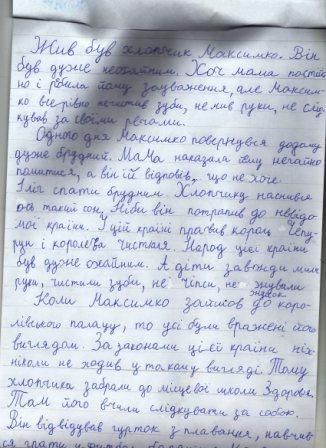 Жив був хлопчик Максимко. Він
був дуже неохайним. Хоч мама постій
но і робила йому зауваження, але Максим-
ко все-рівно нечистив зуби, не мив руки, не слід-
кував за своїми речами.
Одного дня Максимко повернувся додому
дуже брудний. Мама наказала йому негайно
помитися, а він їй відповів, що не хоче.
І ліг спати брудним. Хлопчику наснився
ось такий сон. Ніби він потрапив до невідо-
мої країни. І цій країні правив король Чепу-
рун і королева Чистюля. Народ цієї країни
був дуже охайним. А діти завжди мили
руки, чистили зуби, не їли чіпси, не жували
жуйок
Коли Максимко зайшов до коро-
лівського палацу, то усі були вражені його
виглядом. За законами цієї країни ніх-
ніколи не ходив у такому вигляді. Тому
хлопчика забрали до місцевої школи Здоровя.
Там його вчили слідкувати за собою.
Він відвідував гурток з плавання, навчив
ся грати у футбол,